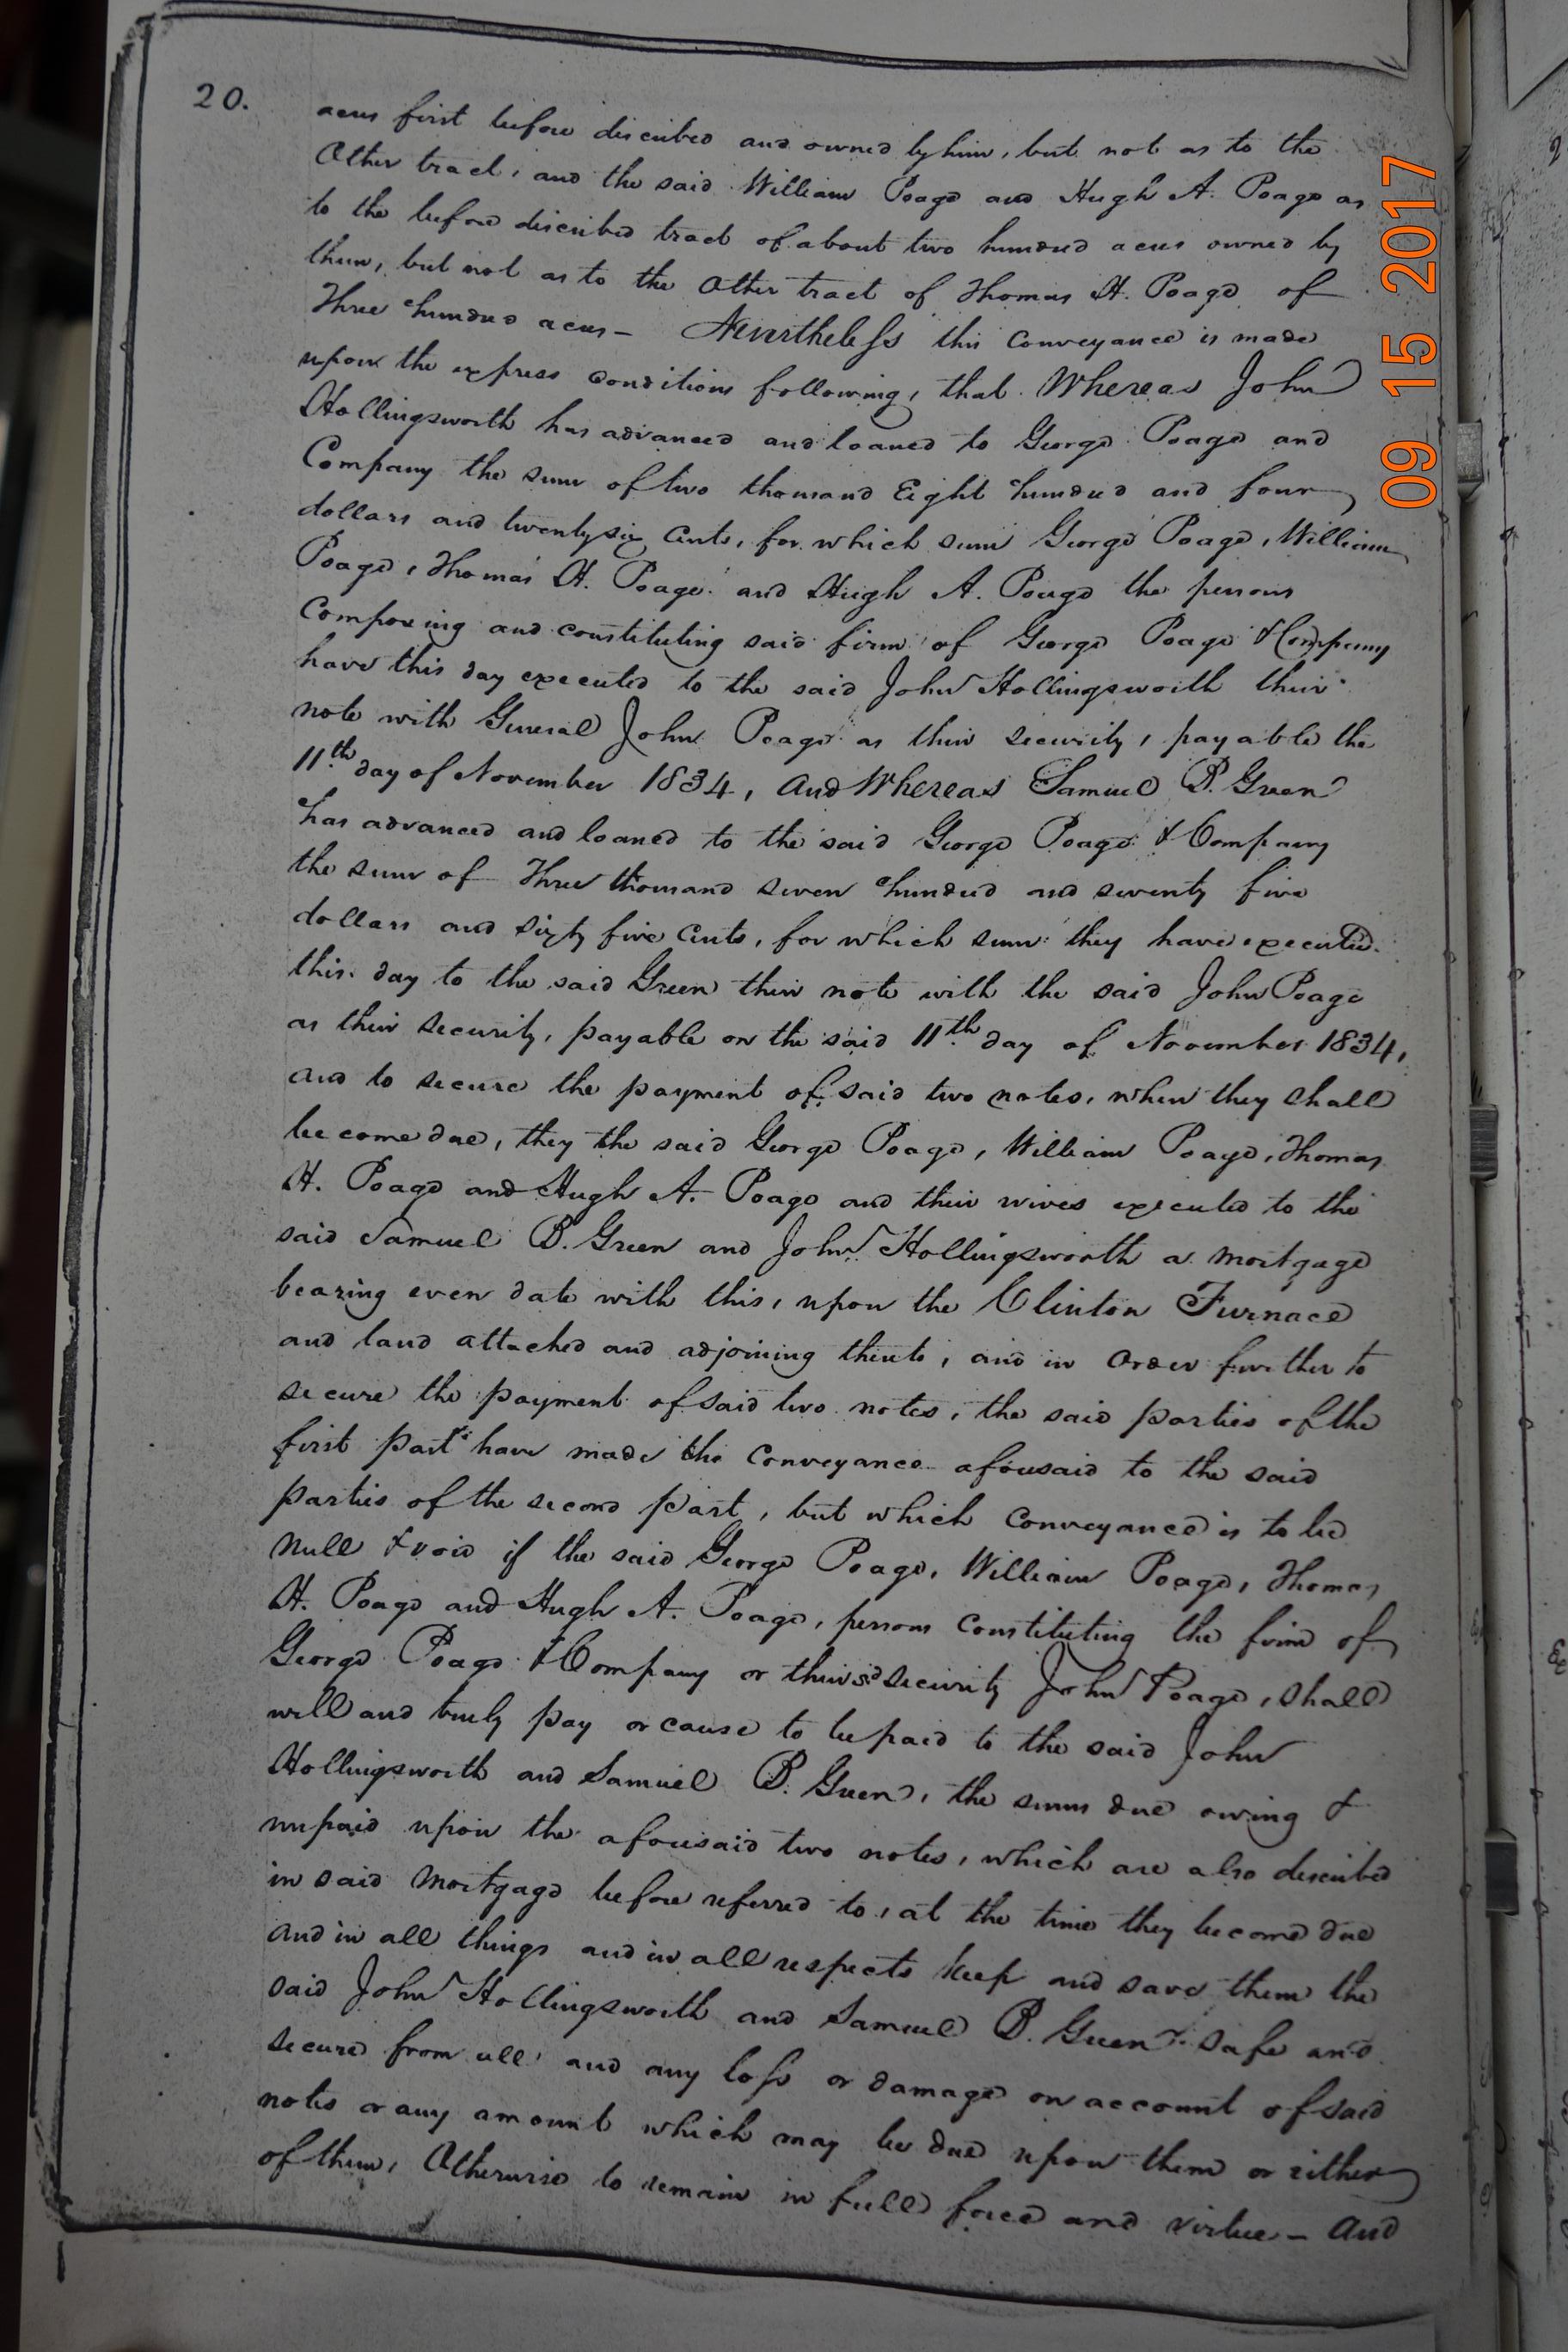 20.
acres first before described and owned by him, but not as to the
Other tract, and the said William Poage and Hugh A. Poage as
to the before described tract of about two hundred acres owned by
them, but not as to the Other tract of Thomas H. Poage of
Three hundred acres – Nevertheless this Conveyance is made
upon the express conditions following, that Whereas John
Hollingsworth has advanced and loaned to George Poage and
Company the sum of two thousand Eight hundred and four
dollars and twentysix Cents, for which sum George Poage, William
Poage, Thomas H. Poage and Hugh A. Poage the persons
Composing and constituting said firm of George Poage & Company
have this day executed to the said John Hollingsworth their
note with General John Poage as their security, payable the
11th day of November 1834, And Whereas Samuel B. Green
has advanced and loaned to the said George Poage & Company
the sum of Three thousand seven hundred and seventy five
dollars and sixty five Cents, for which sum they have executed
this day to the said Green their note with the said John Poage
as their security, payable on the said 11th day of November 1834,
and to secure the payment of said two notes, when they shall
become due, they the said George Poage, William Poage, Thomas
H. Poage and Hugh A. Poage and their wives executed to the
said Samuel B. Green and John Hollingsworth a mortgage
bearing even date with this, upon the Clinton Furnace
and land attached and adjoining thereto, and in Order further to
secure the payment of said two notes, the said parties of the
first part have made the Conveyance aforesaid to the said
parties of the second part, but which Conveyance is to be
Null & void if the said George Poage, William Poage, Thomas
H. Poage and Hugh A. Poage, persons Constituting the firm of
George Poage & Company or their sd security John Poage, shall
well and truly pay or cause to be paid to the said John
Hollingsworth and Samuel B. Green, the sums due owing &
unpaid upon the aforesaid two notes, which are also described
in said Mortgage before referred to, at the time they become due
and in all things and in all respects keep and save them the
said John Hollingsworth and Samuel B. Green safe and
secure from all and any loss or damage on account of said
notes or any amount which may be due upon them or either
of them, Otherwise to remain in full force and virtue – And
09 15 2017